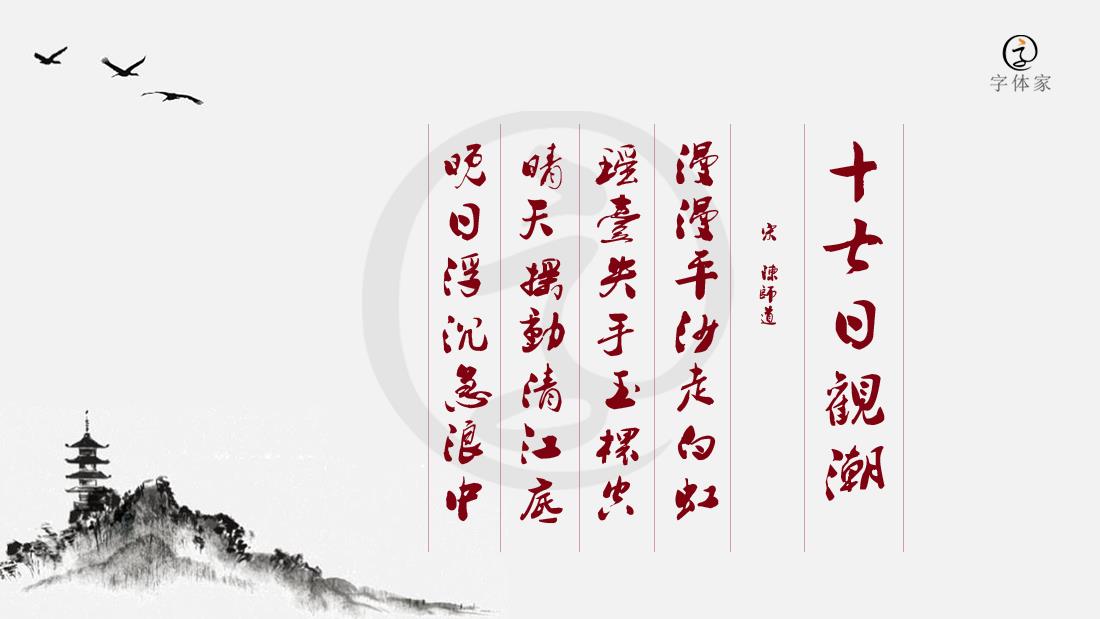 字体家
十七日觀潮
宋 陳師道
漫漫平沙走白虹
瑶臺失手玉桮空
晴天摇動清江底
晚日浮沉急浪中